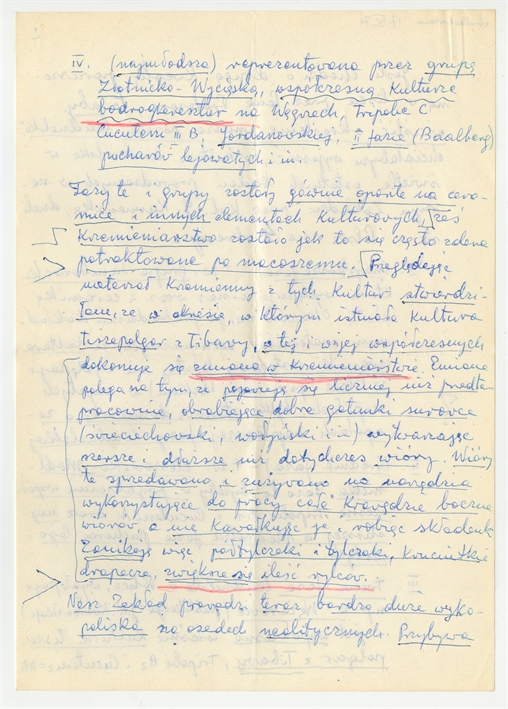 IV. (najmłodsza) reprezentowana przez grupę
Złotnicko-Wyciąską, współczesną Kulturze
bodrogkeresztur na Węgrzech, Tripolie C
Cucuteni III B Jordanowskiej, II fazie (Baalberg)
pucharów lejowatych i in.
Fazy te i grupy zostały głównie oparte na cera-
mice i innych elementach Kulturowych, zaś
Krzemieniarstwo zostało jak to się często zdarza
potraktowane po macoszemu. Przeglądając
materiał Krzemienny z tych Kultur stwierdzi-
łam, że w okresie, w którym istniała Kultura
tiszapolgar z Tibavy, i tej wyżej współczesnych
dokonuje się zmiana w Krzemieniarstwie. Zmiana
polega na tym, że pojawiają się liczniej niż przedtem
pracownie, obrabiające dobre gatunki surowca
(świeciechowski, wołyński i in) wytwarzając
szersze i dłuższe niż dotychczas wióry. Wióry
te sprzedawano, i zużywano na narzędzia
wykorzystujące do pracy całe Krawędzie boczne
wiórów, a nie Kawałkując je i robiąc składanki
Zanikają więc półtylczaki i tylczaki, Krociutkie
drapacze, zwiększa się ilość rylców.
Nasz Zakład prowadzi teraz bardzo duże wyko-
paliska na osadach neolitycznych. Przybywa